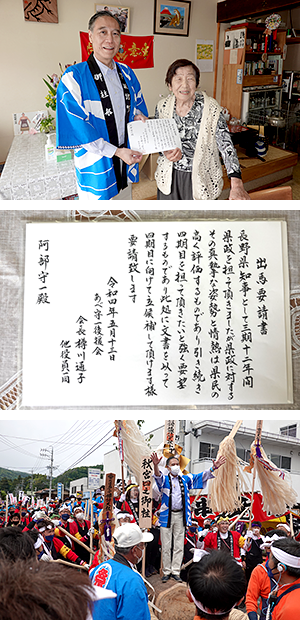 御社
出馬要請書
長野県知事として三期十二年間
県政を担って頂きましたが県政に対する
その真摯な姿勢と情熱は県民の
高く評価するものであり引き続き
四期目を担って頂きたいと強く要望
するものであり此処に文書を以って
四期目に向けて立候補して頂けます様
要請致します
令和四年五月十三日
あべ守一後援会
会長 樽川通子
他役員一同
阿部守一殿
秋宮一之御柱